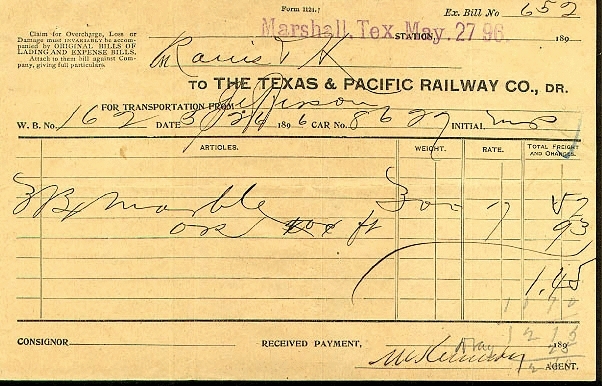 Form 1121. Ex. Bill No 652
Claim for Overcharge, Loss or
Damage must INVARIABLY be accom-
panied by ORIGINAL BILLS OF
LADING AND EXPENSE BILLS.
Attach to them bill against Com-
pany, giving full particulars.
Marshall, Tex. May. 27 96
STATION 189
M
TO THE TEXAS & PACIFIC RAILWAY CO., DR.
FOR TRANSPORTATION FROM Jefferson
W. B. No. 162 DATE 189 6 CAR No. 8627 INITIAL
ARTICLES. WEIGHT. RATE. TOTAL FREIGHT AND CHARGES.
3 Bx Marble 300 17 52
93
1.45
CONSIGNOR RECEIVED PAYMENT, 189
AGENT.